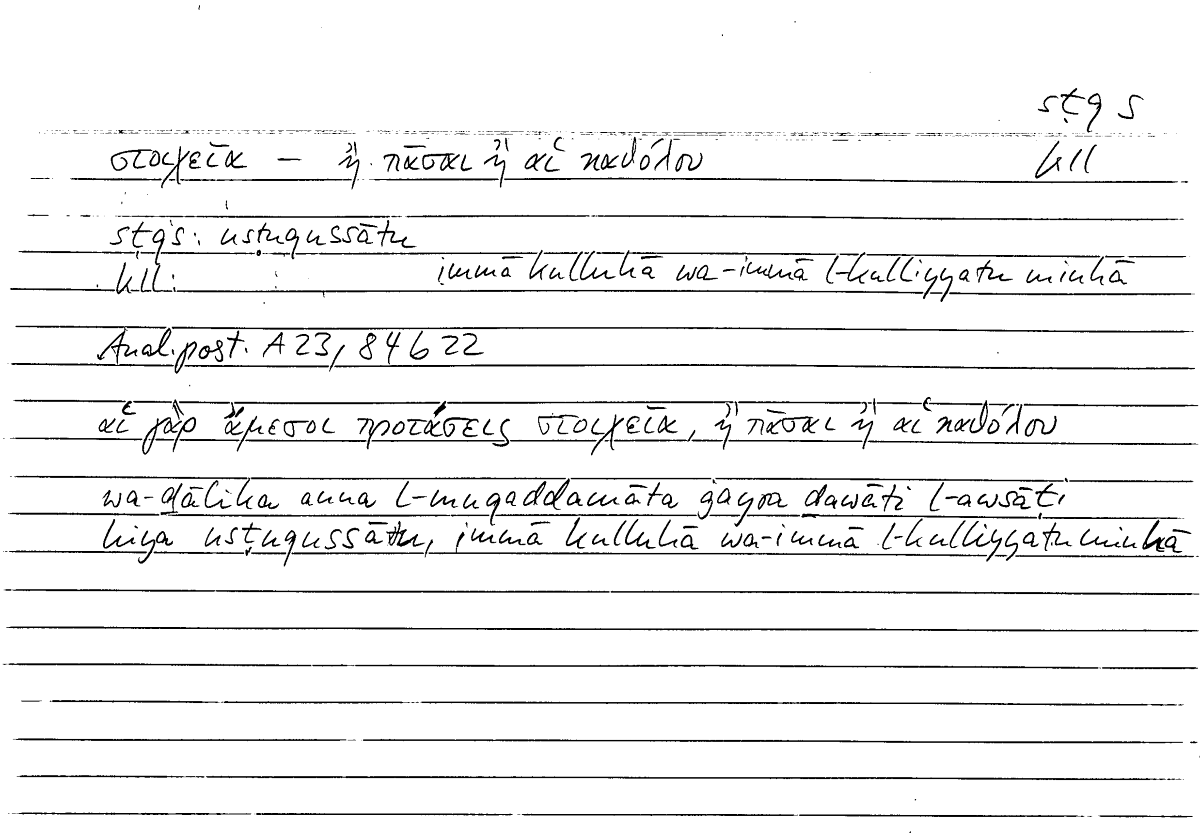 sṭqs
στοιχεῖα — ἢ πᾶσαι ἢ αἱ καθόλου kll
sṭqs: usṭuqussātu
kll: immā kulluhā wa-immā l-kulliyyatu minhā
Anal.post. A23, 84b22
αἱ γὰρ ἄμεσοι προτάσεις στοιχεῖα, ἢ πᾶσαι ἢ αἱ καθόλου
wa-ḏālika anna l-muqaddamāta ġayra dawāti l-awsāṭi
hiya usṭuqussātu, immā kulluhā wa-immā l-kulliyyatu minhā